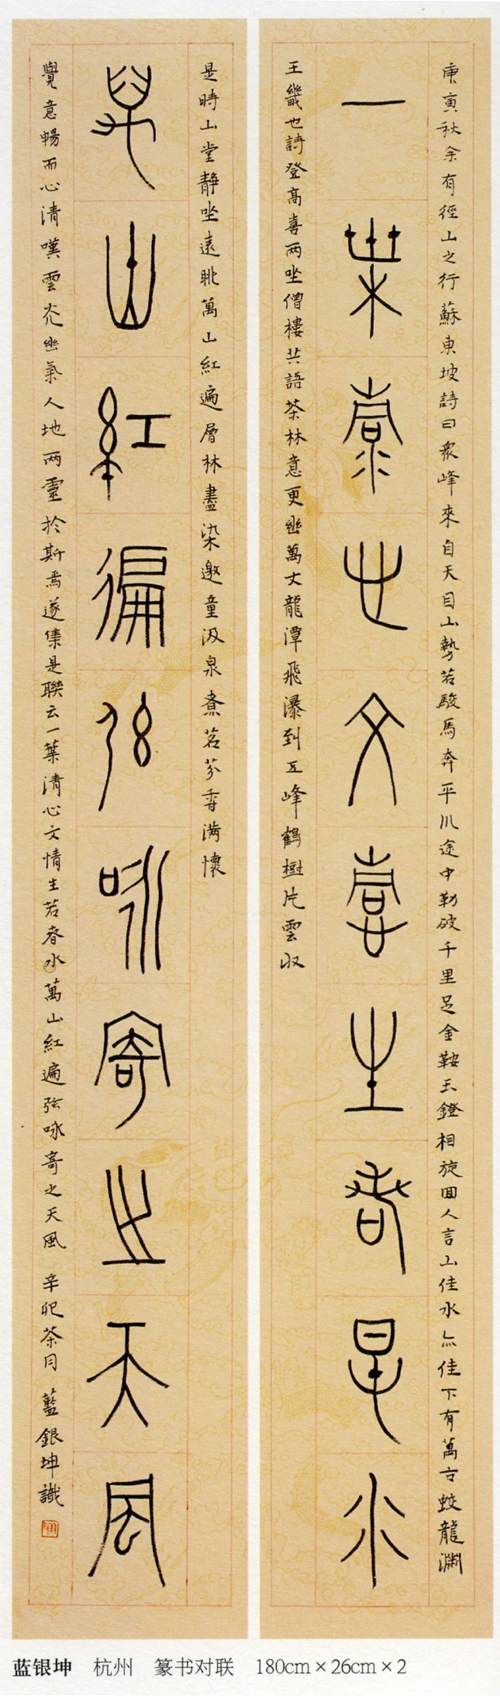 庚寅秋余有徑山之行蘇東坡詩曰衆峰來自天目山勢若駿馬奔平川途中勒破千里足金鞍玉鐙相旋回人言山佳水亦佳下有萬古蛟龍淵
一葉清心文情生若春水
王畿也詩登高喜兩坐僧樓共語茶林意更幽萬丈龍潭飛瀑到五峰鶴樹片雲收
是時山堂靜坐遠眺萬山紅遍層林盡染邀童汲泉煮茗芬香滿懷
萬山紅徧弦咏寄之天風
覺意暢而心清嘆雲光幽氣人地兩靈於斯焉遂集是聯云一葉清心文情生若春水萬山紅遍弦咏寄之天風 辛卯茶月 藍銀坤識
蓝银坤 杭州 篆书对联 180cm×26cm×2